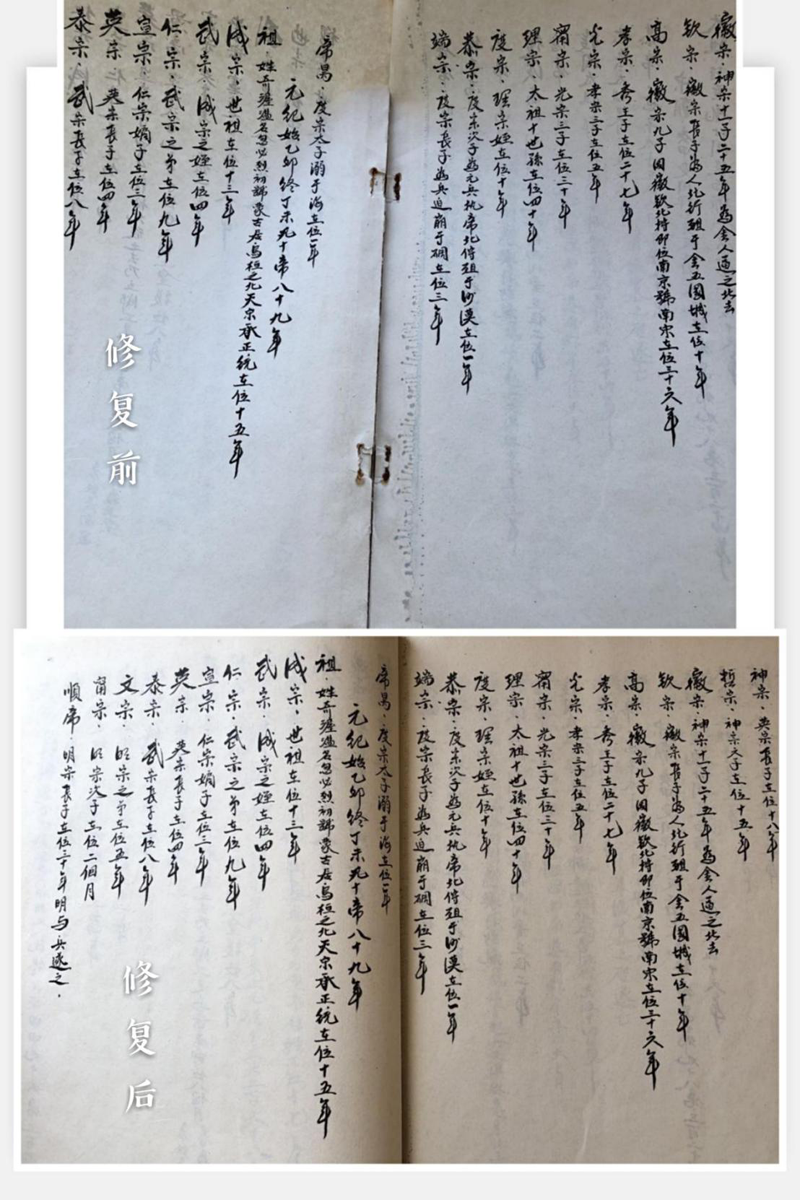 徽宗·神宗十一子二十五年為金人逼之北去
欽宗·徽宗長子為人北行殂于金五國城在位十年
高宗·徽宗九子因徽欽北狩即位南京號南宋在位三十六年
孝宗·秀王子在位二十七年
光宗·孝宗三子在位五年
甯宗·光宗三子在位三十年
理宗·太祖十世孫在位四十年
度宗·理宗姪在位十年
恭宗·度宗次子為元兵执帝北俘殂于沙漠在位一年
端宗·度宗長子為兵迫崩于碙在位三年
帝昺·度宗太子溺于海在位一年
元紀始乙卯終丁未凡十帝八十九年
祖·姓奇渥溫名忽必烈初號蒙古在位十五年
成宗·世祖在位十三年
武宗·成宗之姪在位四年
仁宗·武宗之弟在位九年
宣宗·仁宗嫡子在位三年
英宗·英宗長子在位四年
泰宗·武宗長子在位八年
修复前
神宗·英宗長子在位十八年
哲宗·神宗六子在位十五年
徽宗·神宗十一子二十五年為金人逼之北去
欽宗·徽宗長子為人北行殂于金五國城在位十年
高宗·徽宗九子因徽欽北狩即位南京號南宋在位三十六年
孝宗·秀王子在位二十七年
光宗·孝宗三子在位五年
甯宗·光宗三子在位三十年
理宗·太祖十世孫在位四十年
度宗·理宗姪在位十年
恭宗·度宗次子為元兵执帝北俘殂于沙漠在位一年
端宗·度宗長子為兵迫崩于碙在位三年
帝昺·度宗太子溺于海在位一年
元紀始乙卯終丁未凡十帝八十九年
祖·姓奇渥溫名忽必烈初號蒙古在位十五年
成宗·世祖在位十三年
武宗·成宗之姪在位四年
仁宗·武宗之弟在位九年
宣宗·仁宗嫡子在位三年
英宗 英宗長子在位四年
泰宗·武宗長子在位八年
文宗·明宗之弟在位五年
甯宗·明宗次子在位二個月
順帝·明宗長子在位三十年明与兵逐之.
修复后